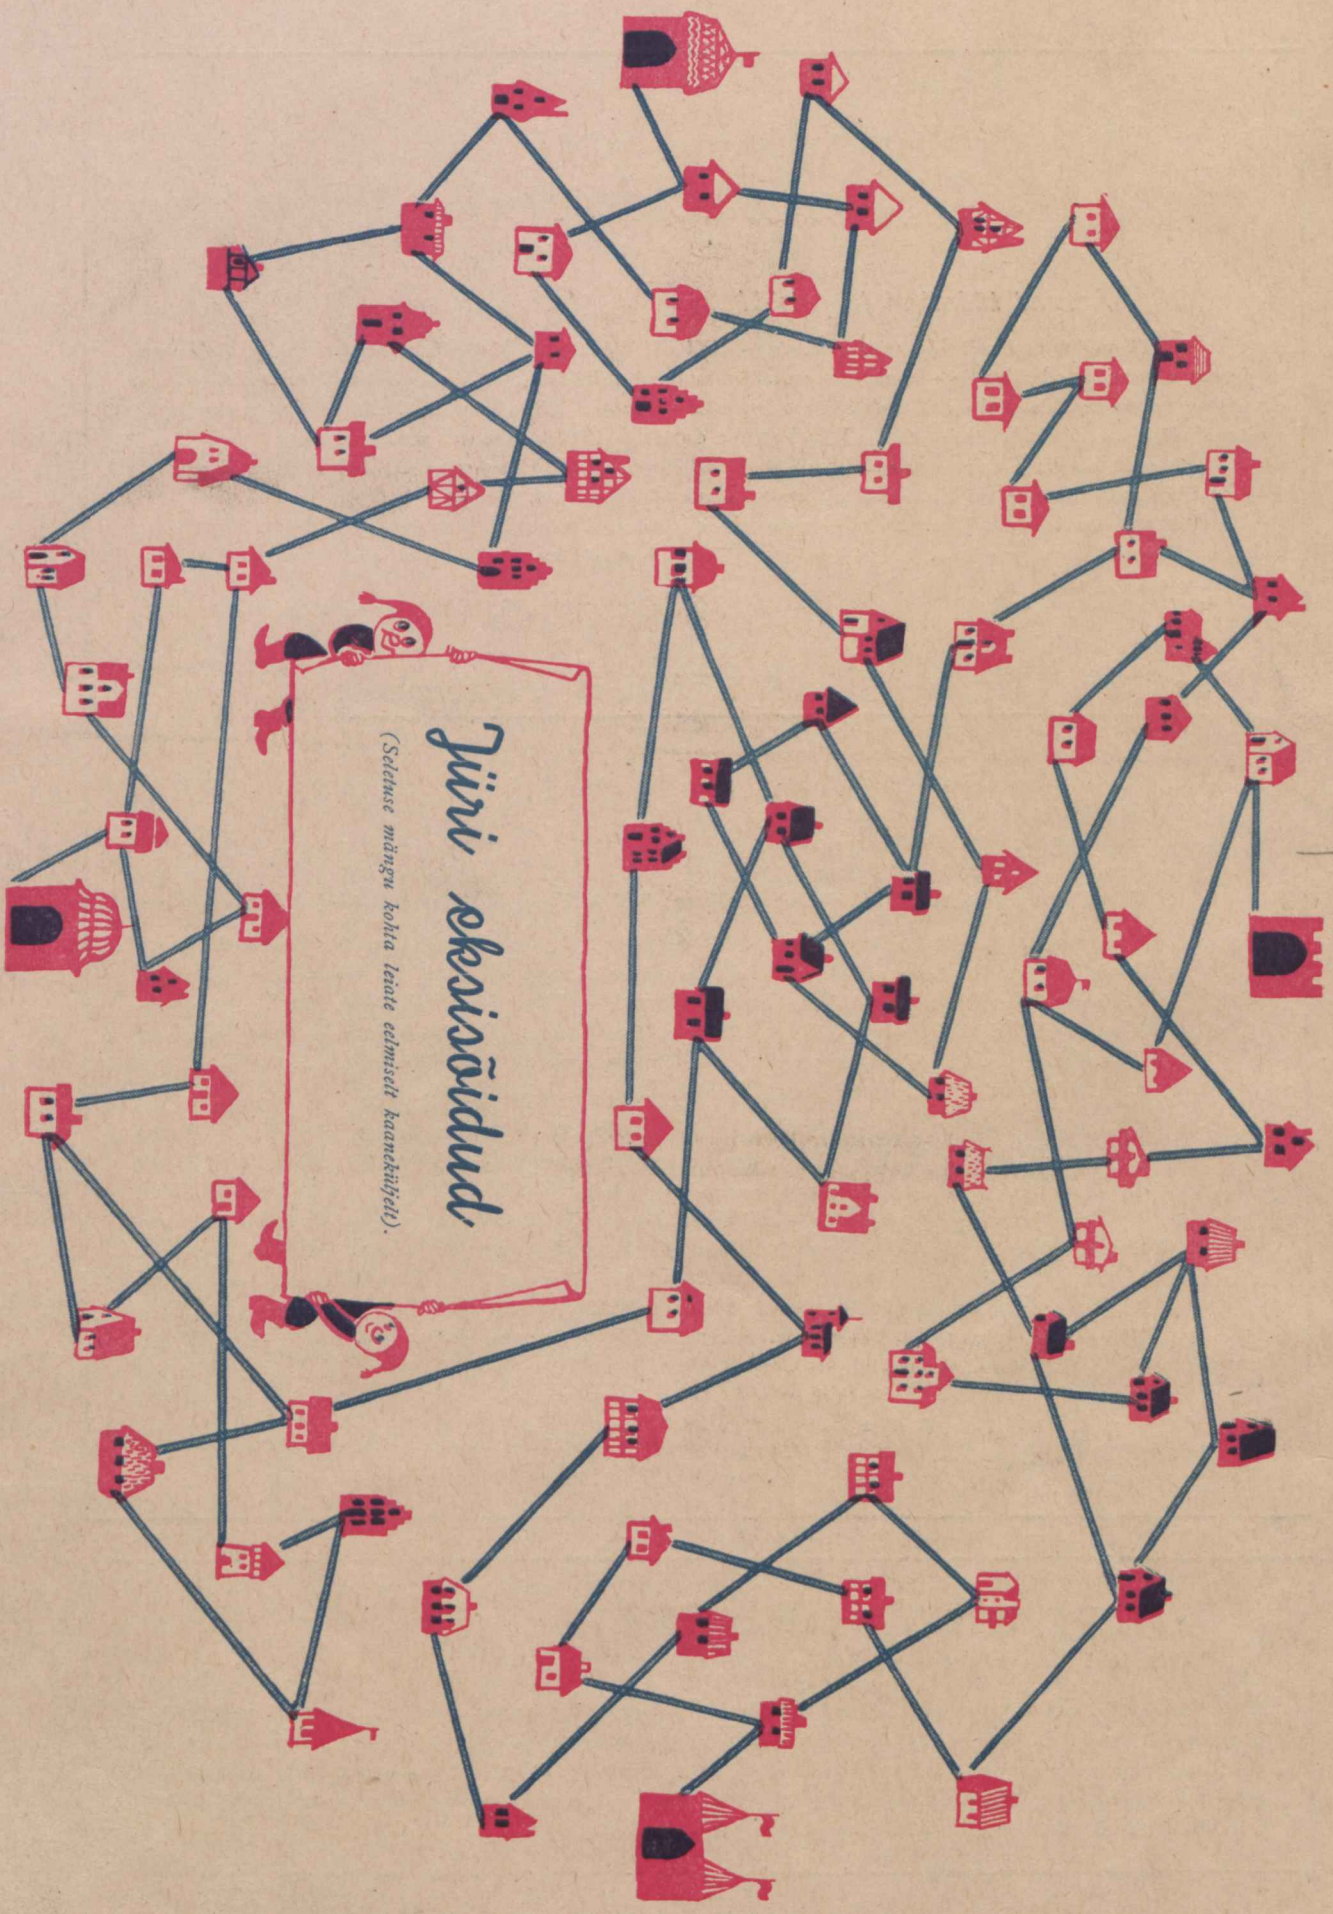 Jüri eksisõidud
(Seletuse mängu kohta leiate eelmiselt kaaneküljelt).